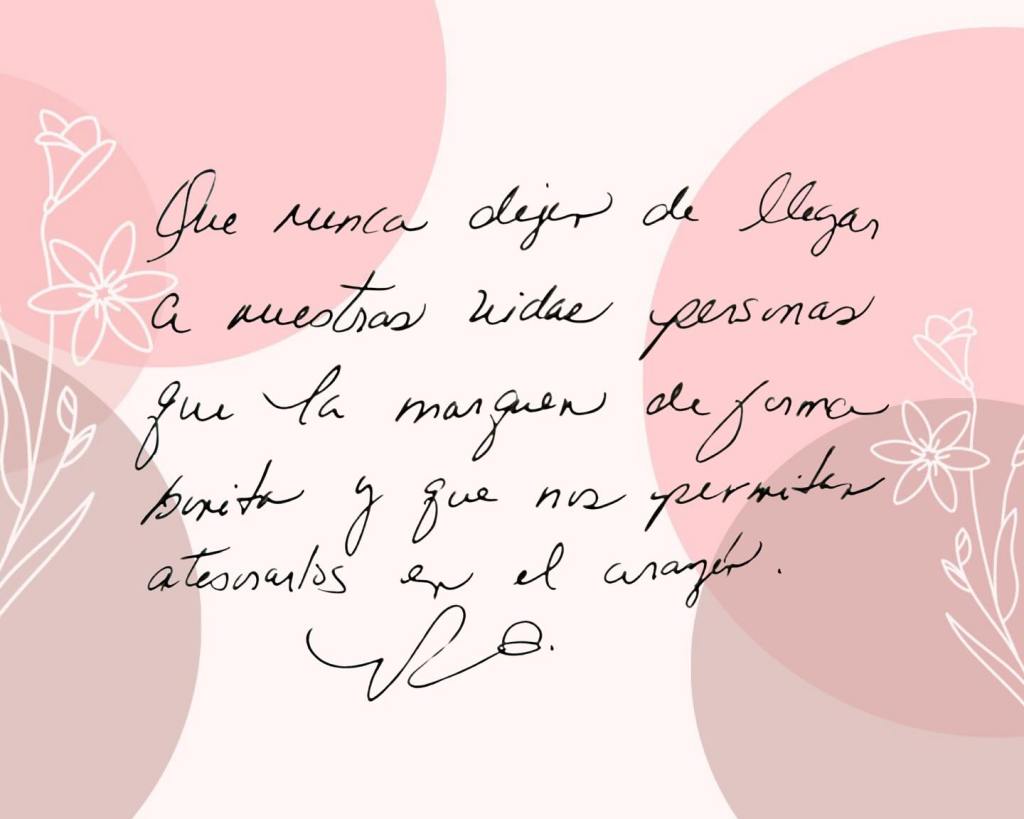 Que nunca dejen de llegar
a nuestras vidas personas
que la marquen de forma
bonita y que nos permitan
atesorarlos en el corazón.